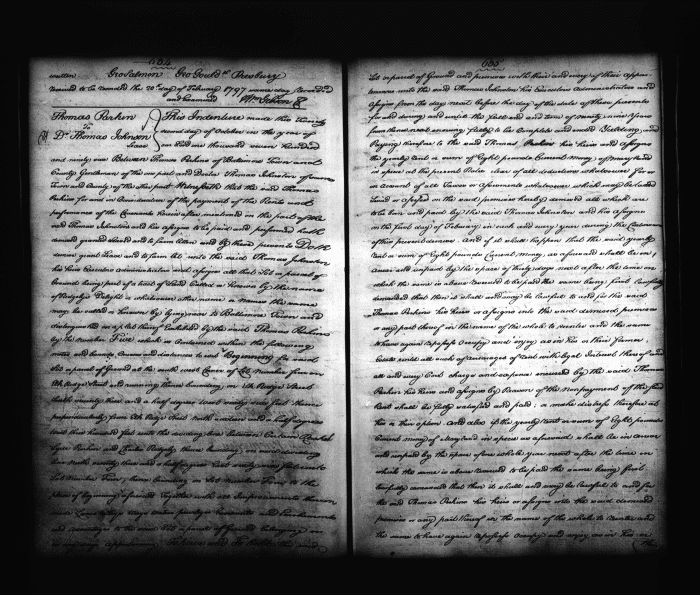 written Geo Salmon Geo Gould^n Presbury
received to be recorded the 20th day of February 1797 same day Recorded
and Examined
Thomas Parkin
To
D^r Thomas Johnson
Lease
This Indenture made this twenty
second day of October in the year of
our Lord one thousand seven hundred
and ninety six Between Thomas Parkin of Baltimore Town and
County Gentleman of the one part and Doctor Thomas Johnson of same
Town and County of the other part Witnesseth that the said Thomas
Parkin for and in Consideration of the payment of the Rents and
performance of the Covenants herein after mentioned on the part of the
said Thomas Johnson and his assigns to be paid and performed hath
demised granted leased and to farm letten and by these presents Doth
demise grant lease and to farm let unto the said Thomas Johnson
his heirs Executors administrators and assigns all that Lot or parcel of
Ground being part of a tract of Land Called or known by the name
of Ridgely's Delight or whatsoever other name or names the same
may be called or known by lying near to Baltimore Town and
distinguished on a plat thereof Exhibited by the said Thomas Parkin
by the Number Five which is Contained within the following
metes and bounds Courses and distances to wit Beginning for said
Lot or parcel of Ground at the north west Corner of Lot Number four on
Street and running thence bounding on Street
North ninety three and a half degrees West ninety six feet thence
Street North sixteen and a half degrees
East three hundred feet unto the dividing line between
Parkin and Charles Ridgely thence bounding on said dividing
line South seventy three and a half degrees East ninety six feet unto
Lot Number Four, thence bounding on Lot Number Four to the
place of beginning aforesaid Together with all Improvements thereon
and advantages to the said Lot or parcel of Ground belonging or
in any wise appertaining To have and To Hold the said
655
Lot or parcel of Ground and premises with their and every of their appur-
tenances unto the said Thomas Johnson his Executors Administrators and
Assigns from the day next before the day of the date of these presents
for and during and until the full end and term of Ninety nine Years
from thence next ensuing fully to be Complete and ended Yielding and
Paying therefor to the said Thomas Parkin his heirs and assigns
the yearly rent or sum of Eight pounds Current money of Maryland
in specie at the present Rates clear of all deductions whatsoever for or
on account of any Taxes or Assessments whatsoever which may be laid
Levied or assessed on the said premises hereby demised all which are
to be born and paid by the said Thomas Johnson and his assigns
on the first day of February in each and every year during the Continuance
of this present demise. and if it shall happen that the said yearly
rent or sum of Eight pounds Current money, as aforesaid shall be in
arrear and unpaid by the space of thirty days next after the time on
which the same is above reserved to be paid the same being first lawfully
demanded that then it shall and may be lawful to and for the said
Thomas Parkin his heirs or assigns into the said demised premises
or any part thereof in the name of the whole to reenter and the same
to have again repossess Occupy and enjoy as in his or their former
Estate until all such of arrearages of rent with legal Interest thereof and
all and every Cost charge and expence incurred by the said Thomas
Parkin his heirs and assigns by reason of the Nonpayment of the said
Rent shall be fully satisfied and paid; or make distress therefor at
his or their option. And also if the yearly rent or sum of Eight pounds
Current money of Maryland in specie as aforesaid shall be in arrear
and unpaid by the space of one whole year next after the time on
which the same is above reserved to be paid the same being first
lawfully demanded that then it shall and may be lawful to and for
the said Thomas Parkin his heirs or assigns into the said demised
premises or any part thereof in the name of the whole to reenter and
the same to have again repossess occupy and enjoy as in his or